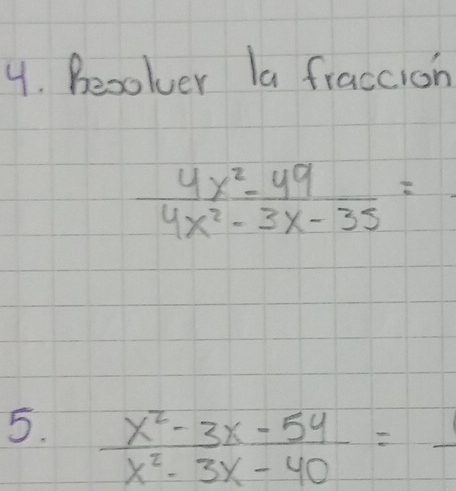 4. Resolver la fracción
4x² - 49
4x² - 3x - 35 =
5. x² - 3x - 54
x² - 3x - 40 =